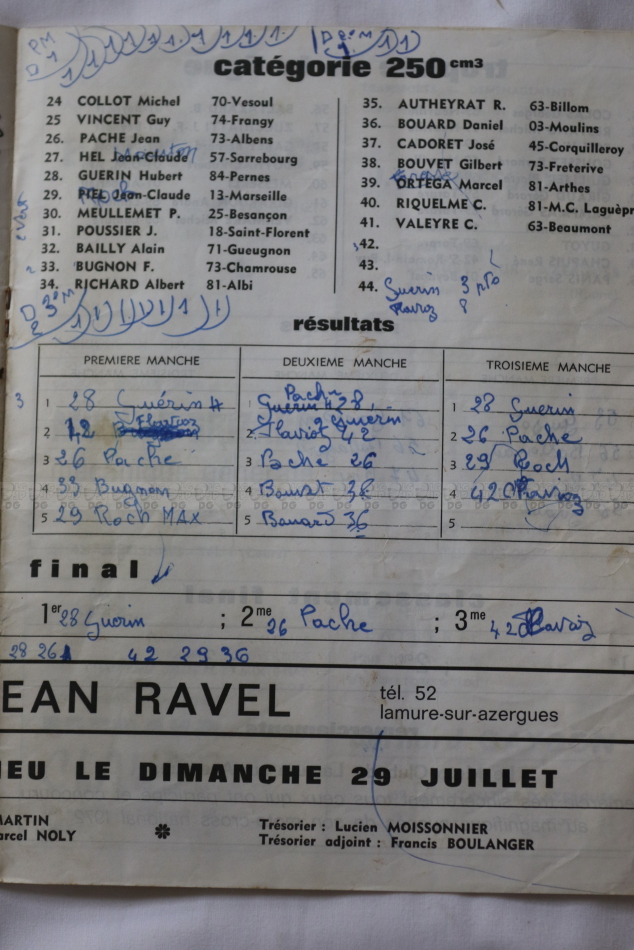 catégorie 250 cm3
24 COLLOT Michel 70-Vesoul
25 VINCENT Guy 74-Frangy
26. PACHE Jean 73-Albens
27. HEL Jean-Claude 57-Sarrebourg
28. GUERIN Hubert 84-Pernes
29. Jean-Claude 13-Marseille
30. MEULLEMET P. 25-Besançon
31. POUSSIER J. 18-Saint-Florent
32. BAILLY Alain 71-Gueugnon
33. BUGNON F. 73-Chamrouse
34. RICHARD Albert 81-Albi
35. AUTHEYRAT R. 63-Billom
36. BOUARD Daniel 03-Moulins
37. CADORET José 45-Corquilleroy
38. BOUVET Gilbert 73-Freterive
39. ORTEGA Marcel 81-Arthes
40. RIQUELME C. 81-M.C. Laguèpi
41. VALEYRE C. 63-Beaumont
42.
43.
44. Guerin 3 pts
8
résultats
PREMIERE MANCHE
3
1 28 Guérin H
2 12
3 26 Pache
4 33 Bugnon
5 29 Roch MAX
DEUXIÈME MANCHE
Pache
1 Guerin H 28
2 Guerin
2. 42
3 Pache 26
4 38
5 Bouard 36
TROISIEME MANCHE
1 28 Guerin
2 26 Pache
3 29 Roch
4 42
5
final
1er 28 Guerin ; 2me 26 Pache ; 3me 42
28 26 42 29 36
EAN RAVEL
tél. 52
lamure-sur-azergues
IEU LE DIMANCHE 29 JUILLET
MARTIN
arcel NOLY
*
Trésorier : Lucien MOISSONNIER
Trésorier adjoint : Francis BOULANGER